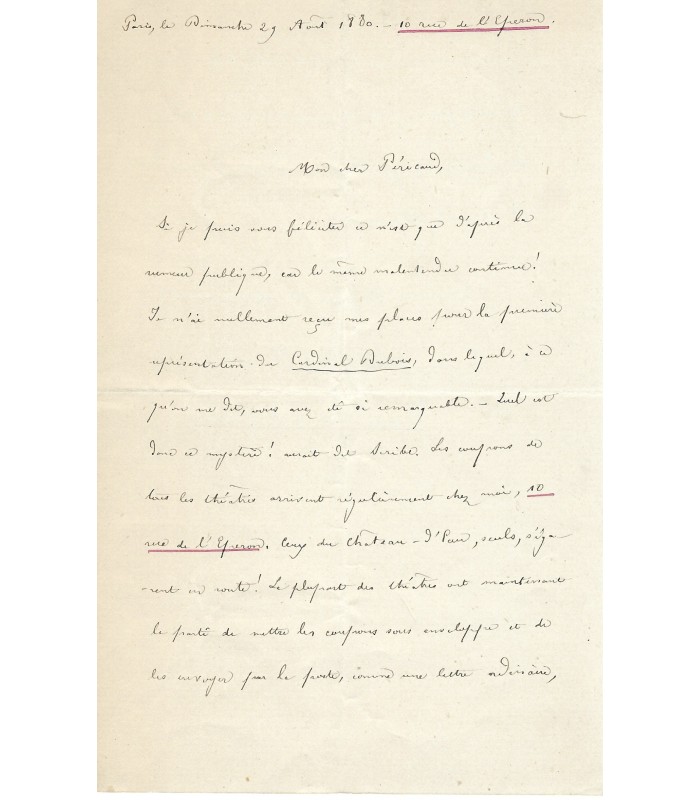 Paris, le Dimanche 29 Août 1880. – 10 rue de l'Eperon.
Mon cher Péricaud,
Si je puis vous féliciter ce n'est que d'après la
rumeur publique, car le même malentendu continue!
Je n'ai nullement reçu mes places pour la première
représentation du Cardinal Dubois, dans lequel, à ce
qu'on me dit, vous avez été si remarquable. – Quel est
donc ce mystère! aurait dit Scribe. Les coupons de
tous les théâtres arrivent régulièrement chez moi, 10
rue de l'Eperon. Ceux du Château-d'Eau, seuls, s'éga-
-rent en route! La plupart des théâtres ont maintenant
le parti de mettre les coupons sous enveloppe et de
les envoyer par la poste, comme une lettre ordinaire,